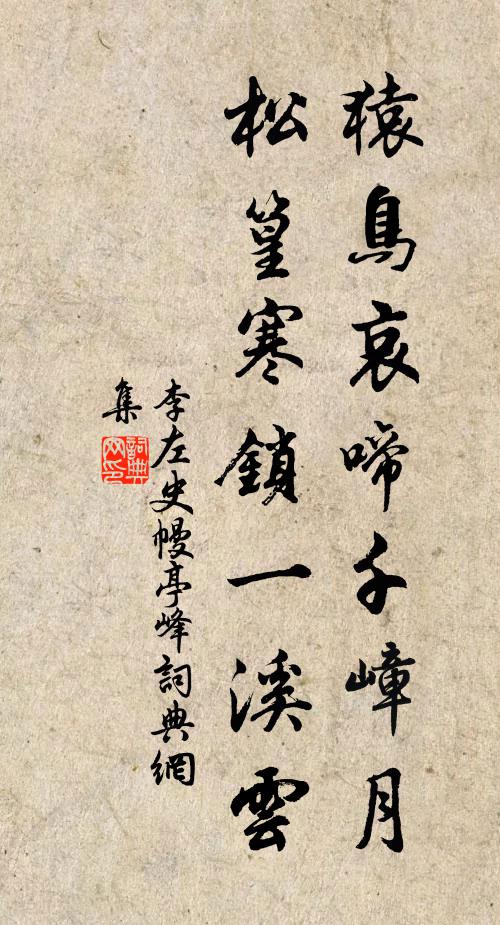 猿鳥哀啼千嶂月
松篁寒鎖一溪雲
李左史幔亭峰詞典網
集
詞典
网印